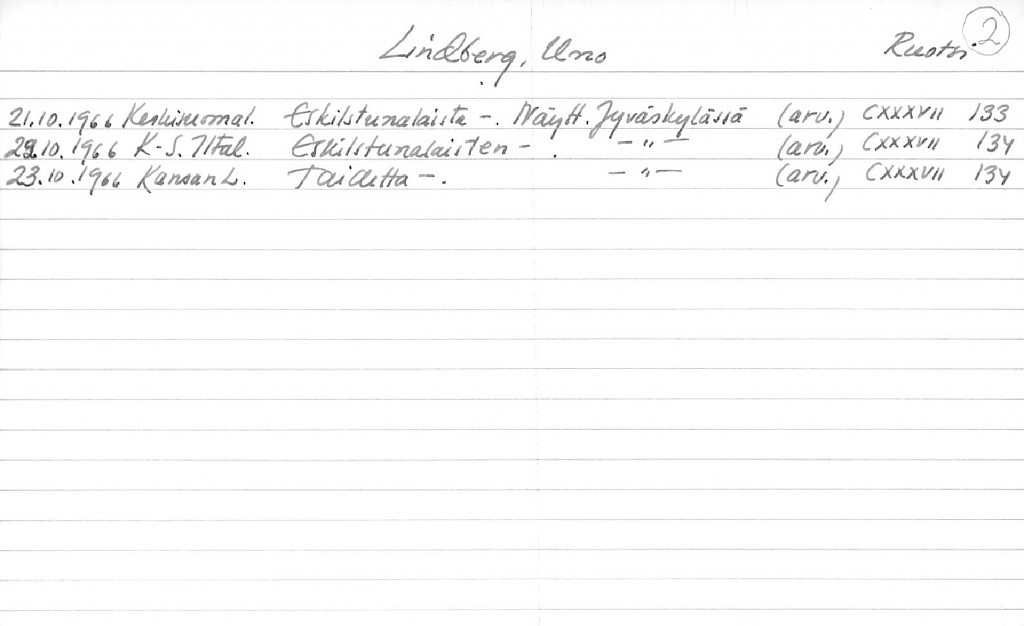 Lindberg, Uno Ruotsi 2
21.10.1966 Keskisuomal. Eskilstunalaista -. Näytt. Jyväskylässä (arv.) CXXXVII 133
29.10.1966 K-S. Iltal. Eskilstunalaisten - . - " - (arv.) CXXXVII 134
23.10.1966 Kansan L. Taidetta -. - " - (arv.) CXXXVII 134